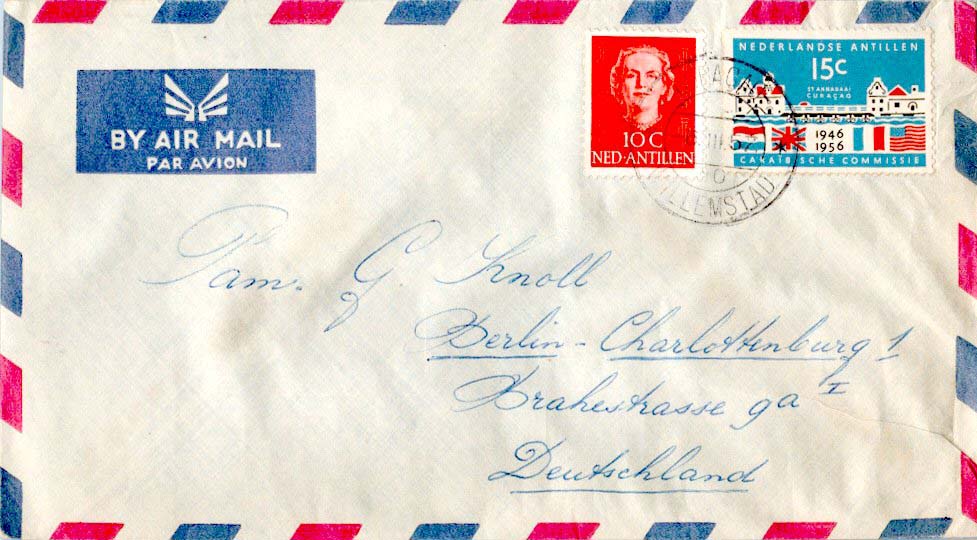 BY AIR MAIL
PAR AVION
10 C
NED·ANTILLEN
NEDERLANDSE ANTILLEN
15c
ST ANNABAAI
CURAÇAO
1946
1956
CARAÏBISCHE COMMISSIE
WILLEMSTAD
Fam. G. Knoll
Berlin-Charlottenburg 1
Brahestrasse 9a I
Deutschland